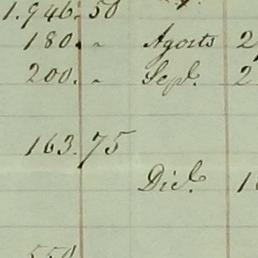 1.946.50
180. " Agosto 2
200. " Sepe. 2
163.75
Dice. 1
550